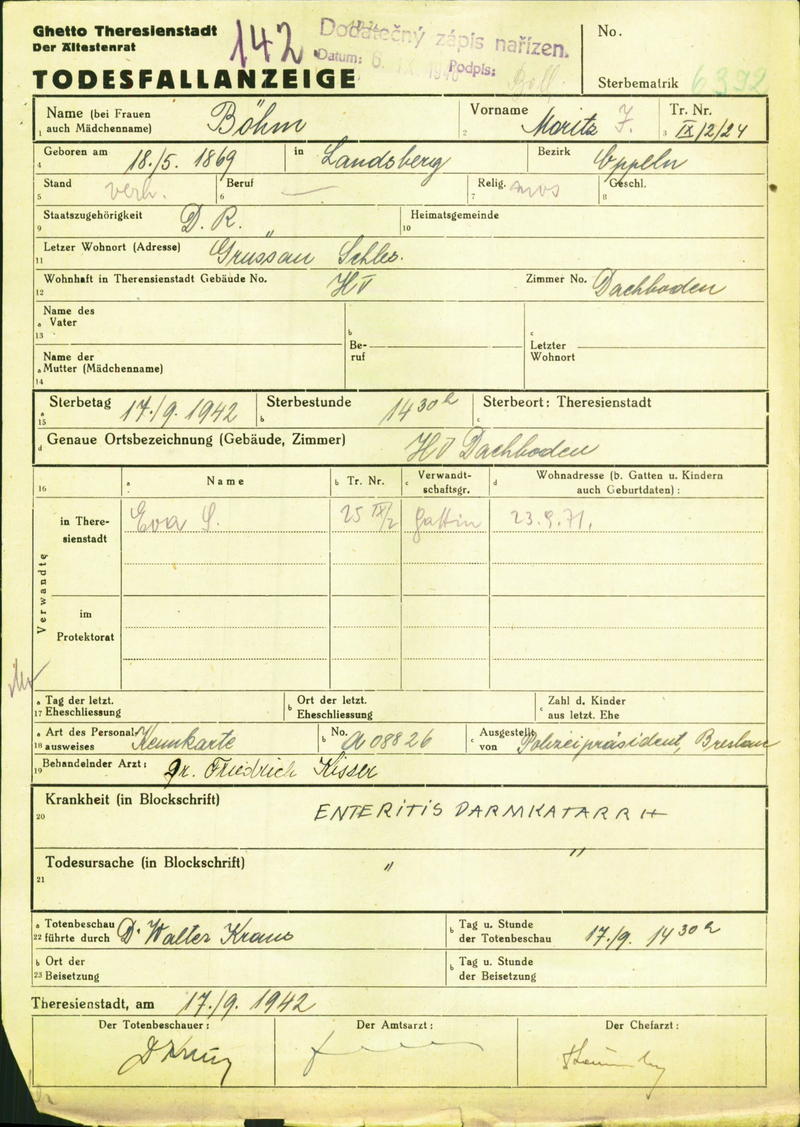 Ghetto Theresienstadt
Der Ältestenrat
TODESFALLANZEIGE
142
Dodatečný zápis nařízen.
Datum: 6. Podpis:
No.
Sterbematrik 6392
Name (bei Frauen auch Mädchenname) Böhm
1
Vorname Moritz J.
2
Tr. Nr. IX/2/24
3
Geboren am 18./5. 1869 in Landsberg Bezirk Oppeln
4
Stand verh. Beruf — Relig. mos Geschl.
5 6 7 8
Staatszugehörigkeit D. R. Heimatsgemeinde
9 10
Letzer Wohnort (Adresse) Grüssau Schles.
11
Wohnhaft in Therensienstadt Gebäude No. HV Zimmer No. Dachboden
12
Name des
a Vater
13
b Beruf
c Letzter Wohnort
Name der
a Mutter (Mädchenname)
14
a Sterbetag 17./9. 1942 b Sterbestunde 14 30 h c Sterbeort: Theresienstadt
15
d Genaue Ortsbezeichnung (Gebäude, Zimmer) HV Dachboden
16 a Name b Tr. Nr. c Verwandtschaftsgr. d Wohnadresse (b. Gatten u. Kindern auch Geburtdaten):
Verwandte
in Theresienstadt Eva S. 25 IX/2 Gattin 23.9.71.
im Protektorat
a Tag der letzt. b Ort der letzt. c Zahl d. Kinder
17 Eheschliessung Eheschliessung aus letzt. Ehe
a Art des Personal- Kennkarte b No. A 08826 c Ausgestellt Polizeipräsident, Breslau
18 ausweises von
19 Behandelnder Arzt: Dr. Friedrich Kisser
Krankheit (in Blockschrift) ENTERITIS DARMKATARRH
20
Todesursache (in Blockschrift) " "
21
a Totenbeschau Dr Walter Kraus b Tag u. Stunde 17./9. 14 30 h
22 führte durch der Totenbeschau
b Ort der b Tag u. Stunde
23 Beisetzung der Beisetzung
Theresienstadt, am 17./9. 1942
Der Totenbeschauer: Der Amtsarzt: Der Chefarzt: